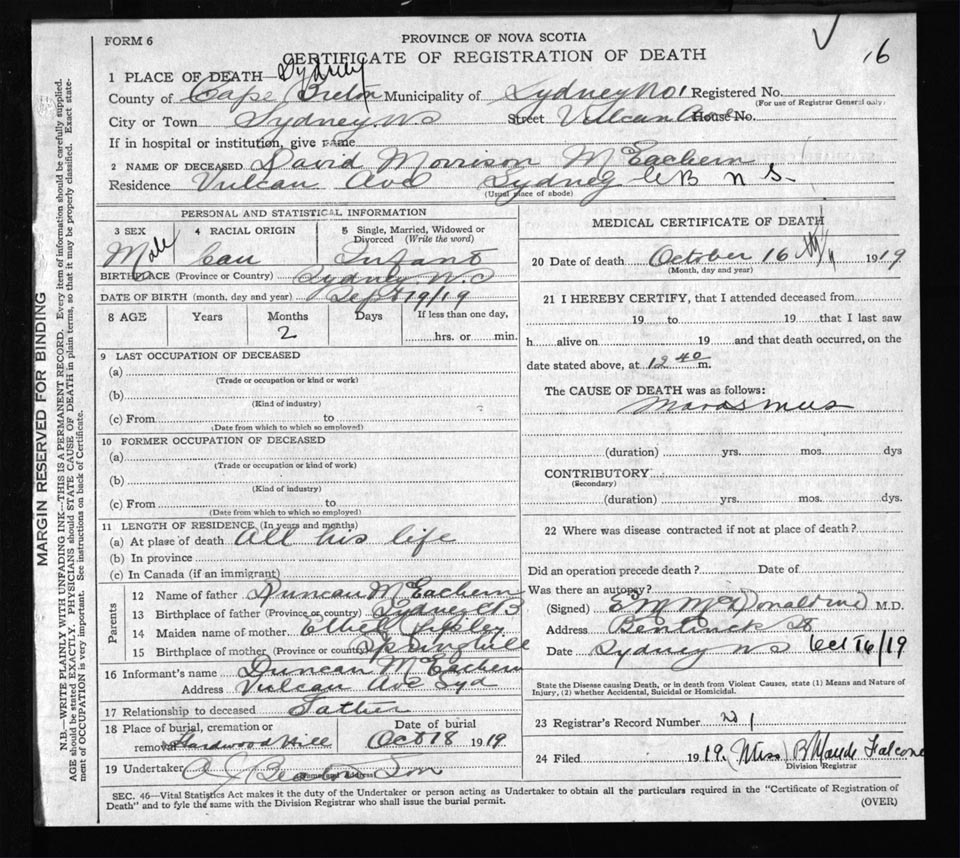 FORM 6
PROVINCE OF NOVA SCOTIA
16
CERTIFICATE OF REGISTRATION OF DEATH
1 PLACE OF DEATH—Sydney
County of Cape Breton Municipality of Sydney No 1 Registered No.
(For use of Registrar General only)
City or Town Sydney N S Street Vulcan Ave House No.
If in hospital or institution, give name
2 NAME OF DECEASED David Morrison McEachern
Residence Vulcan Ave Sydney C B N S.
(Usual place of abode)
PERSONAL AND STATISTICAL INFORMATION
3 SEX 4 RACIAL ORIGIN 5 Single, Married, Widowed or Divorced (Write the word)
Male Cau Infant
BIRTHPLACE (Province or Country) Sydney N.S
DATE OF BIRTH (month, day and year) Sept 19/19
8 AGE Years Months Days If less than one day,
2 hrs. or min.
9 LAST OCCUPATION OF DECEASED
(a)
(Trade or occupation or kind or work)
(b)
(Kind of industry)
(c) From to
(Date from which to which so employed)
10 FORMER OCCUPATION OF DECEASED
(a)
(Trade or occupation or kind of work)
(b)
(Kind of industry)
(c) From to
(Date from which to which so employed)
11 LENGTH OF RESIDENCE (In years and months)
(a) At place of death All his life
(b) In province
(c) In Canada (if an immigrant)
Parents
12 Name of father Duncan McEachern
13 Birthplace of father (Province or country) Sydney C B
14 Maiden name of mother Ethel
15 Birthplace of mother (Province or country) Springhill
16 Informant's name Duncan McEachern
Address Vulcan Ave Syd
17 Relationship to deceased Father
18 Place of burial, cremation or removal Hardwood Hill
Date of burial Oct 18 1919
19 Undertaker A J Beaton Son
(Name and Address)
MEDICAL CERTIFICATE OF DEATH
20 Date of death October 16 1919
(Month, day and year)
21 I HEREBY CERTIFY, that I attended deceased from
19 to 19 that I last saw
h alive on 19 and that death occurred, on the
date stated above, at 12 40 m.
The CAUSE OF DEATH was as follows:
Marasmus
(duration) yrs. mos. dys
CONTRIBUTORY
(Secondary)
(duration) yrs. mos. dys.
22 Where was disease contracted if not at place of death?
Did an operation precede death? Date of
Was there an autopsy?
(Signed) E M McDonald M.D.
Address Bentinck St
Date Sydney N S Oct 16/19
State the Disease causing Death, or in death from Violent Causes, state (1) Means and Nature of
Injury, (2) whether Accidental, Suicidal or Homicidal.
23 Registrar's Record Number 1
24 Filed 1919. Miss B Maude Falconer
Division Registrar
SEC. 46—Vital Statistics Act makes it the duty of the Undertaker or person acting as Undertaker to obtain all the particulars required in the "Certificate of Registration of
Death" and to fyle the same with the Division Registrar who shall issue the burial permit.
(OVER)
MARGIN RESERVED FOR BINDING
N.B.—WRITE PLAINLY WITH UNFADING INK—THIS IS A PERMANENT RECORD. Every item of information should be carefully supplied.
AGE should be stated EXACTLY. PHYSICIANS should STATE CAUSE OF DEATH in plain terms, so that it may be properly classified. Exact state-
ment of OCCUPATION is very important. See instructions on back of Certificate.